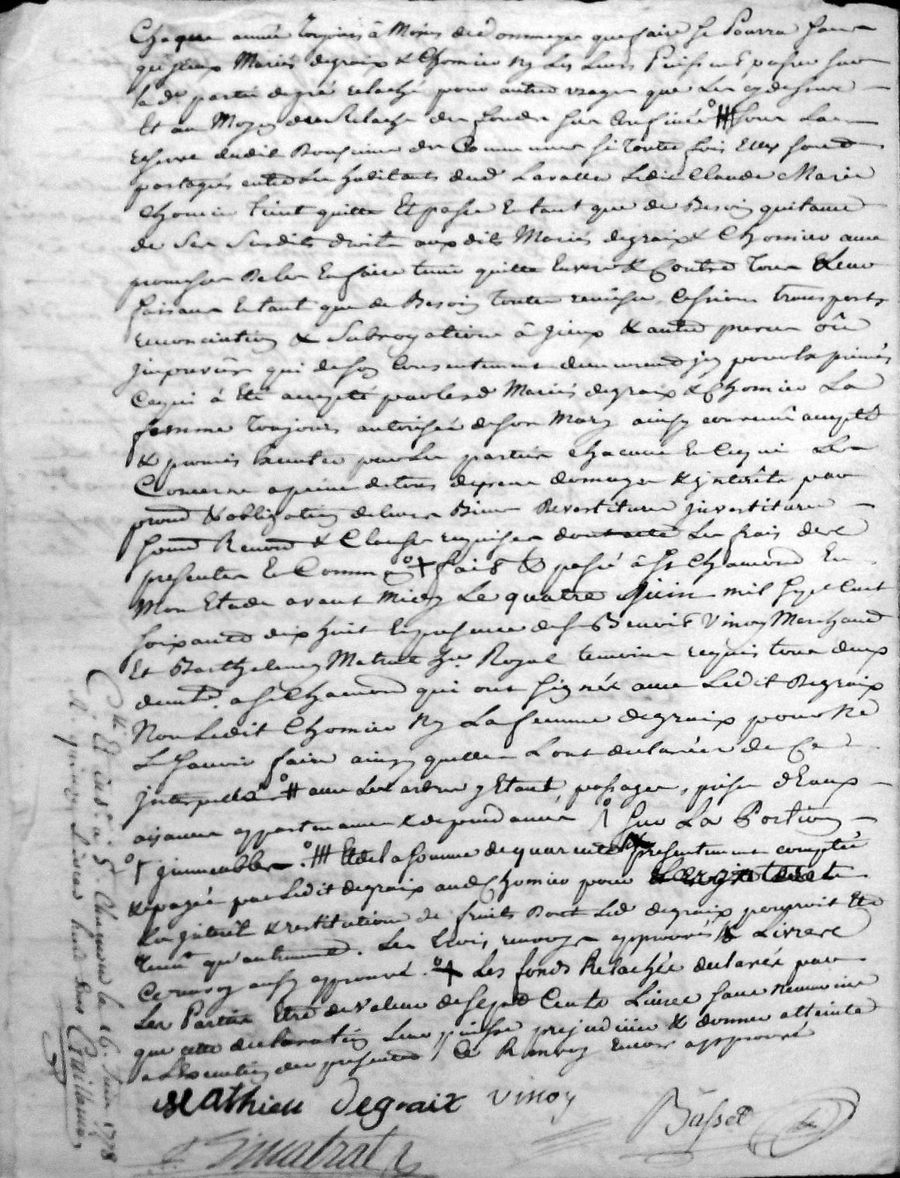 Chaque année toujours à Moins de dommage que faire se Pourra sans
que jceux Mariés degraix & Chomier Ny Les Leurs Puissent passer sur
la de. partie de pré relaché pour autres usages que Les cy dessus
Et au Moyen du Relache des fonds sus Confinés °||| sous La
reserve dudit des Communes si toutes fois Elles sont
partagés entre Les habitants dud. Lavalla Ledit Claude Marie
Chomier tient quitte Et passe En tant que de Besoin quitance
de Ses Susdits droits auxdits Mariés degraix & Chomier avec
promesse de les En faire tenir quitte Envers & Contre Tous & Leur
faisant En tant que de Besoin Toutes remises, Cessions transports
renonciation & Subrogation à jceux & autre
qui de son Consentement demeurent pour
Ce qui à Eté accepté par lesd. Mariés degraix & Chomier La
femme Toujours autorisée de son Mary ainsy convenû accepté
& promis Executer par Les parties chacune En Ce qui Les
Concerne a peine de tous depens domages & jnterêts par
& obligation de leurs Biens Revestiture jnvestiture
Renon. & Clauses requises dont acte Les frais des
presentes En Commun °+ fait & passé à St Chamond En
Mon Etude avant Midy Le quatre Juin mil sept Cent
soixante dix huit En presence de sr Benoit Vinoy Marchand
Et Barthelemy Matrat hr. Royal temoins requis tous deux
demt. a St Chamond qui ont signés avec Ledit Degraix
Non Ledit Chomier Ny La femme degraix pour Ne
Sçavoir faire ainsy quelles L'ont declarées de Ce
jnterpellés °# avec Les arbres y Etant, passages, prises d'Eaux
aisances appartenances & dependances, °| Sur La Portion
°| jmmeubles. °||| Et de la somme de quarente presentement comptée
& payée par Ledit degraix aud. Chomier pour
Les jnterêt & restitution de fruits Dont Led. degraix pourroit Etre
Tenu. Les trois renvoys approuvés & Livres
Ce renvoy aussy approuvé. °+ Les fonds Relachés declarés par
Les Parties Etre de valeur de sept Cents Livres sans Neanmoins
que cette declaration Leur puisse prejudicier & donner atteinte
a L'Execution des presentes, Ce Renvoy Encore approuvé
Mathieu Degraix Vinoy
Basset
Matrat
Ctté Et jns. à St. Chamond le 16. Juin 1778
R. quinze Livres huit sous